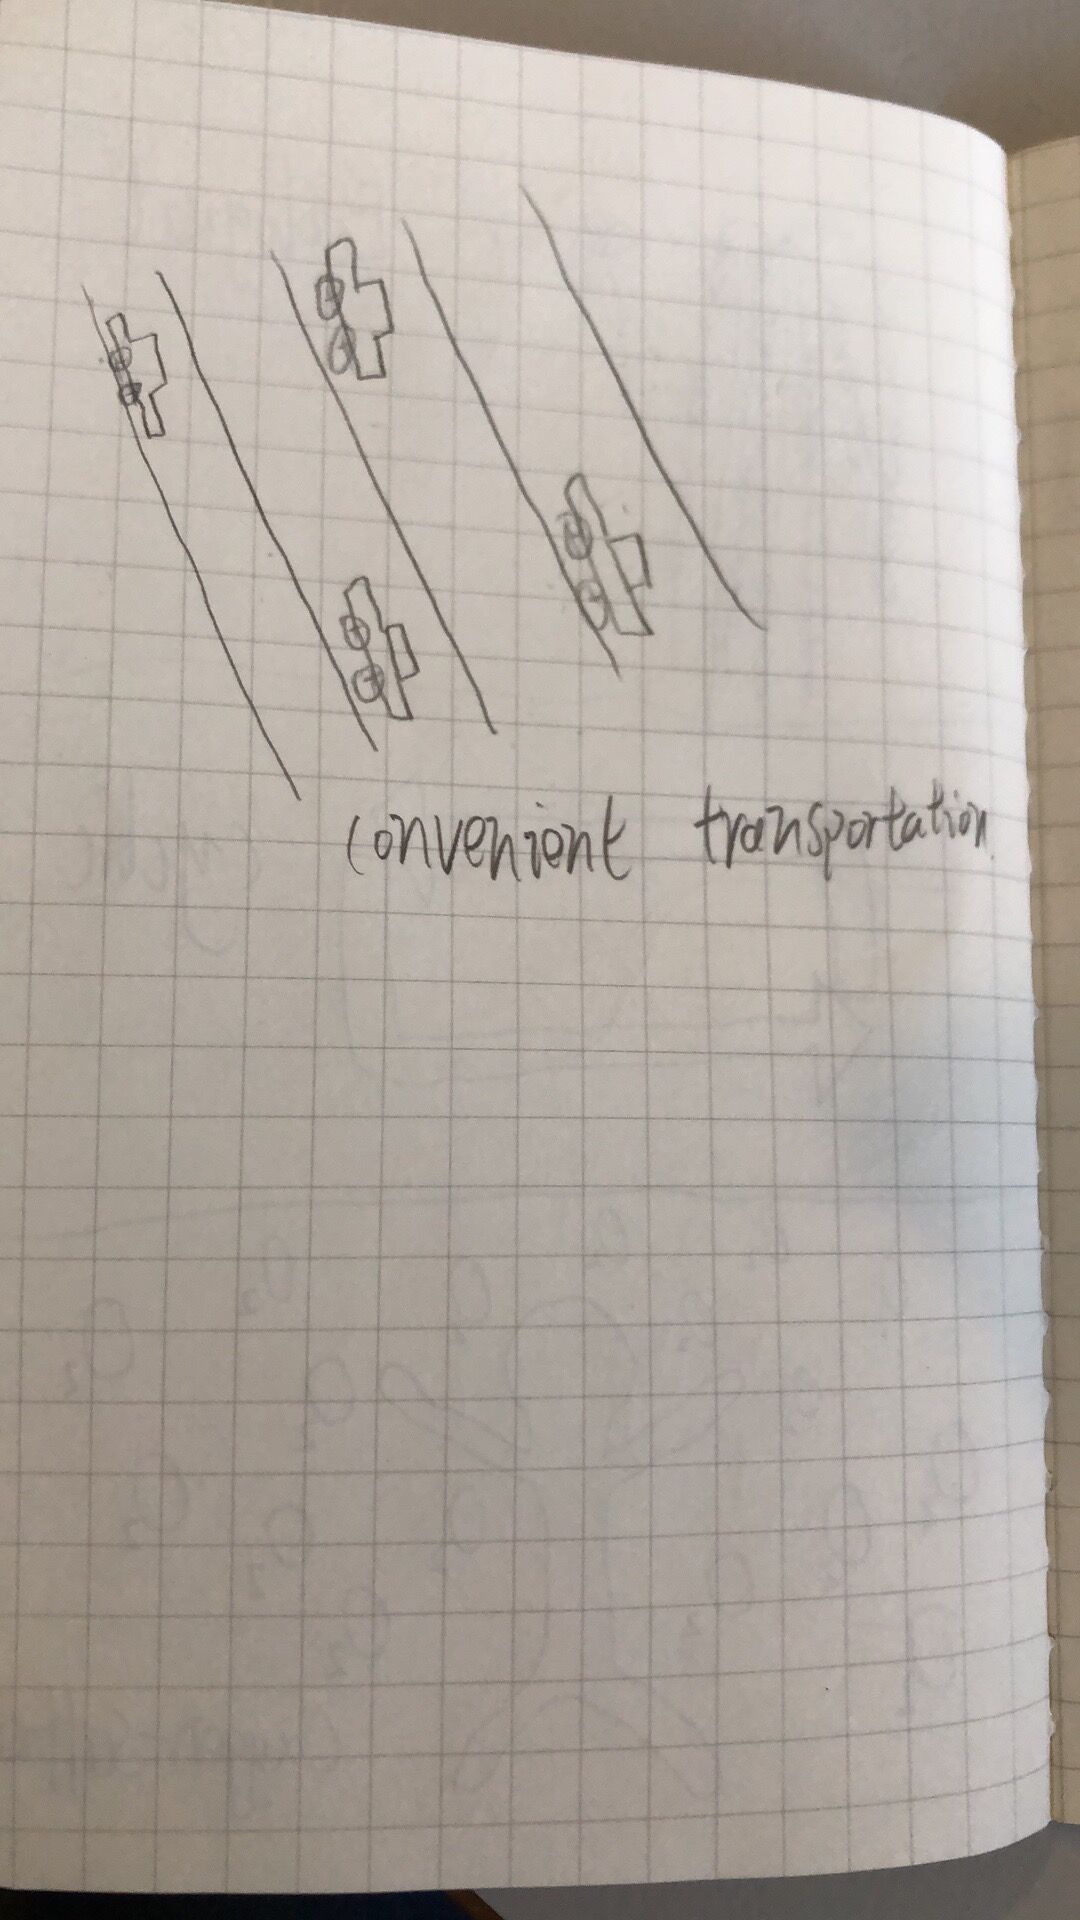 convenient transportation